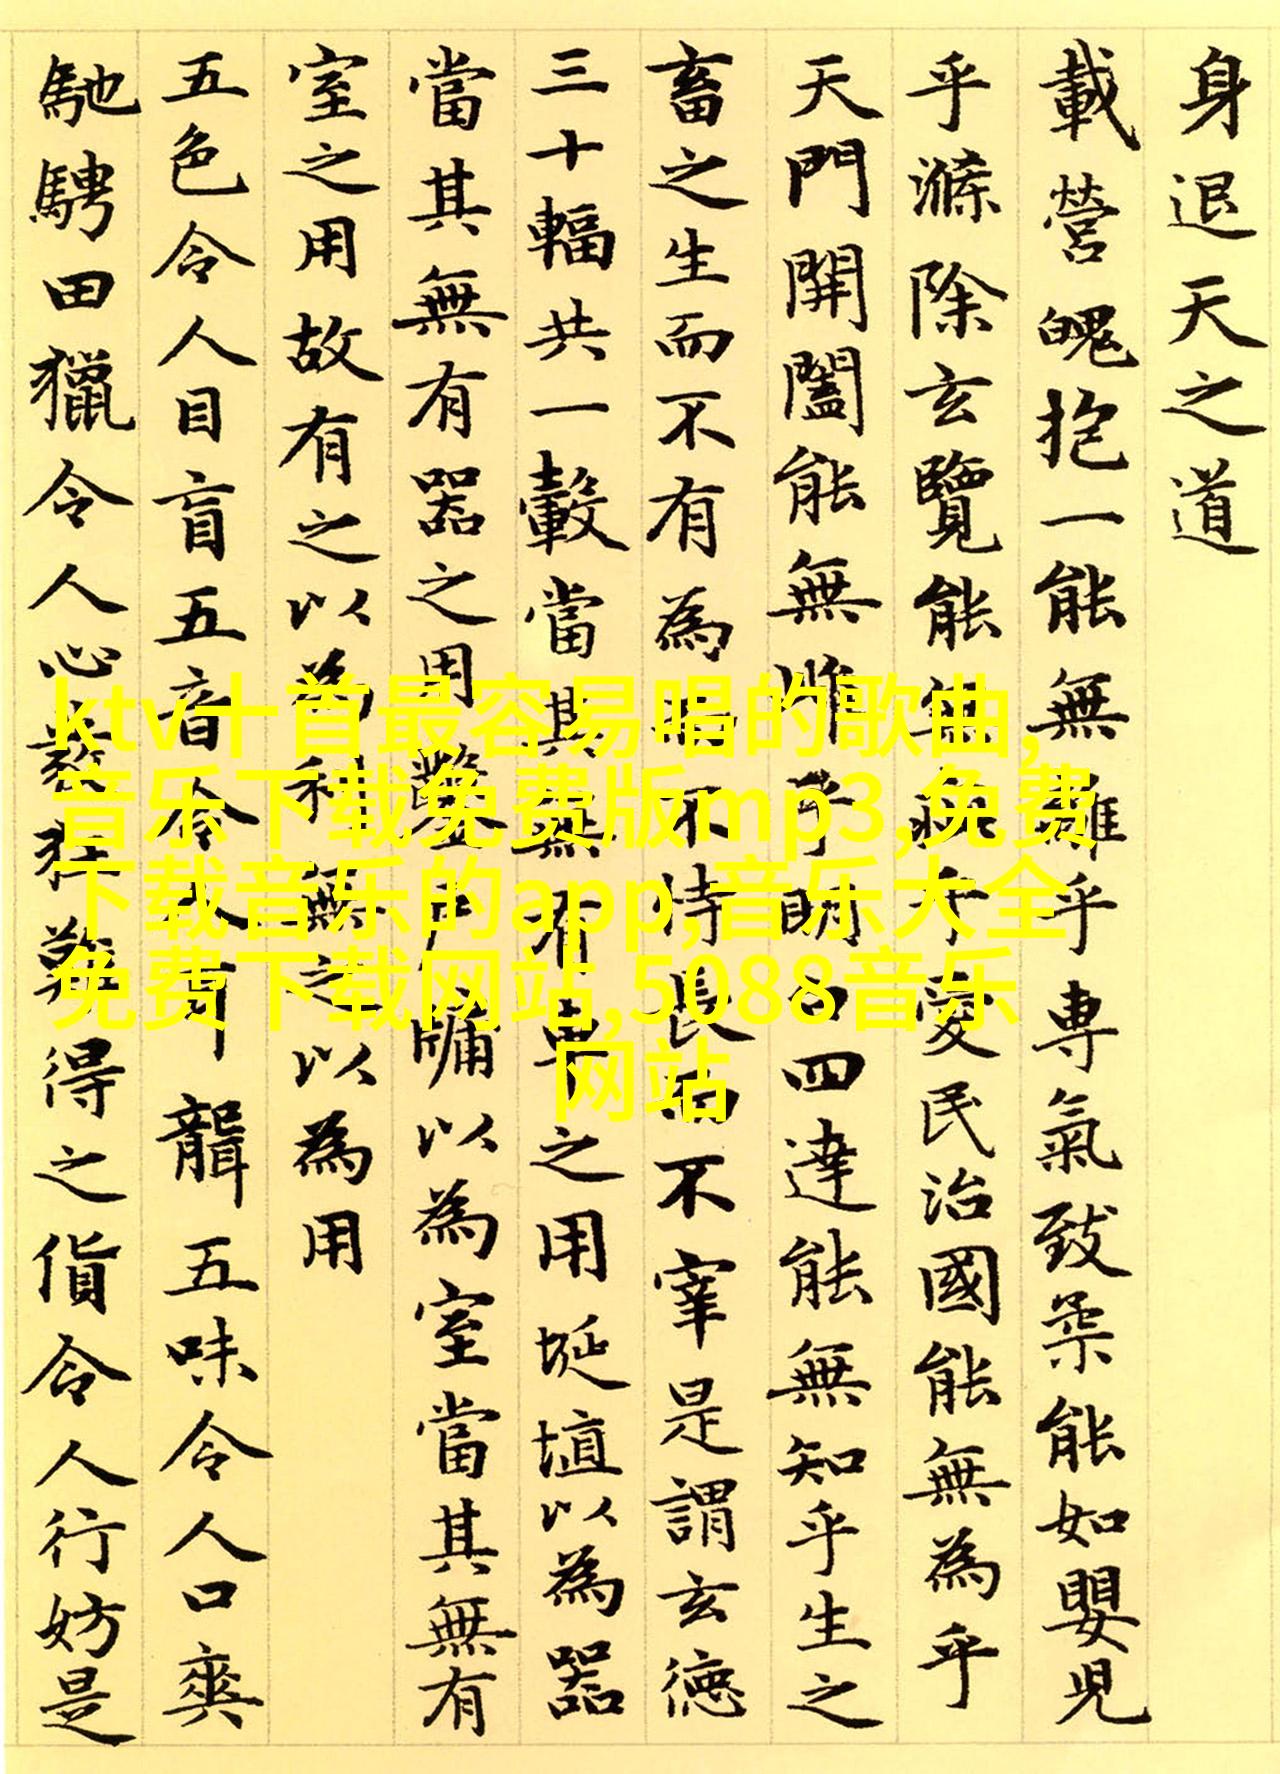 身退天之道
載營魄抱一能無離乎專氣致柔能如嬰兒
乎滌除玄覽能無疵乎愛民治國能無為乎
天門開闔能無雌乎明白四達能無知乎生之
畜之生而不有為而不恃長而不宰是謂玄德
三十輻共一轂當其無有車之用埏埴以為器
當其無有器之用鑿戶牖以為室當其無有
室之用故有之以為利無之以為用
五色令人目盲五音令人耳聾五味令人口爽
馳騁田獵令人心發狂難得之貨令人行妨是
ktv十首最容易唱的歌曲,
音乐下载免费版mp3,免费
下载音乐的app,音乐大全
免费下载网站,5088音乐
网站